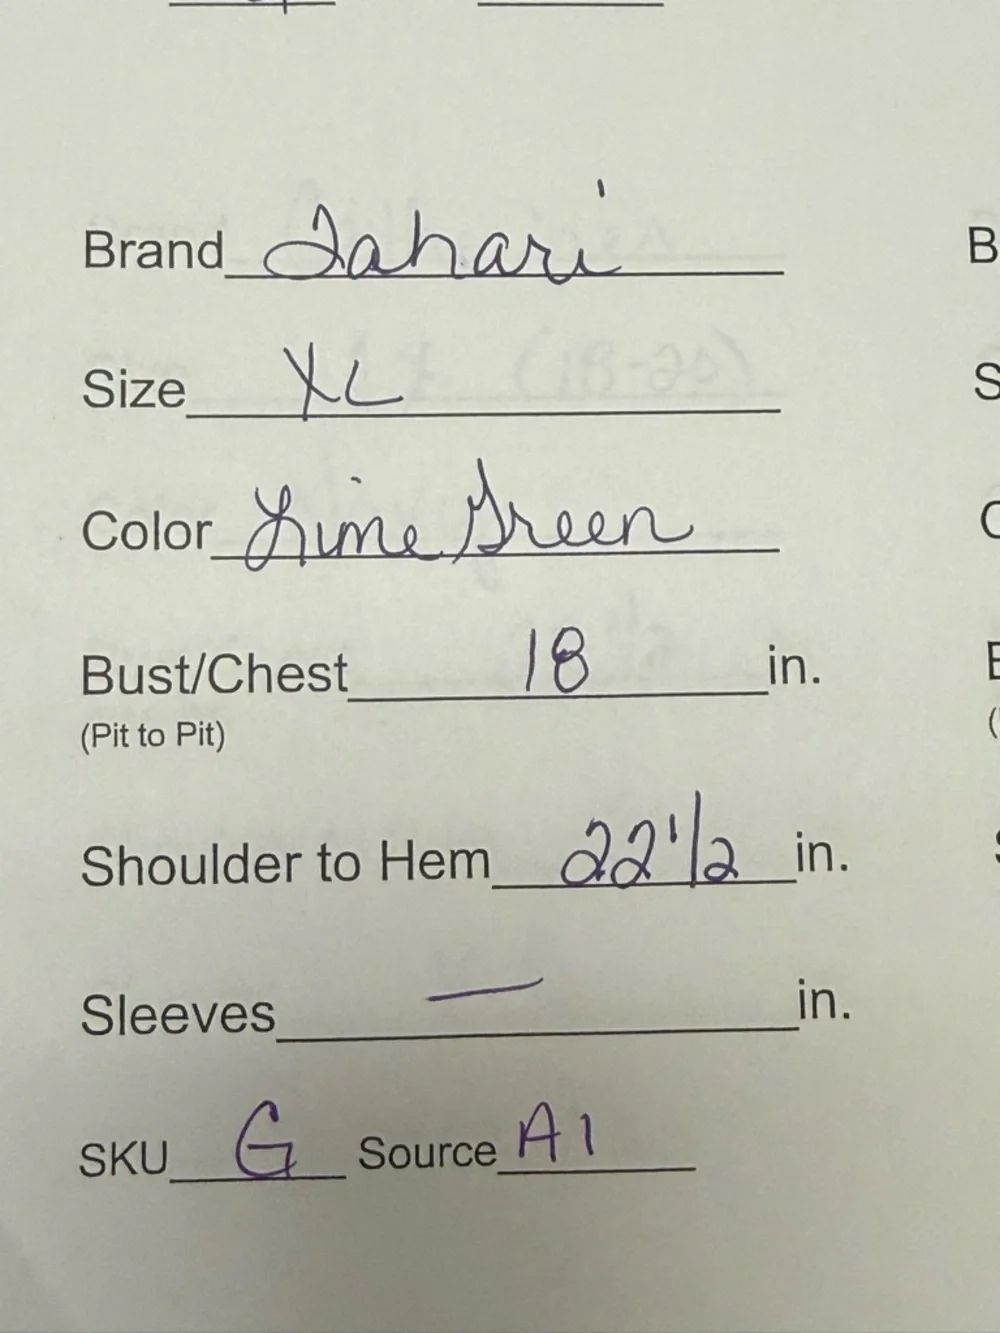 Brand Tahari
Size XL
Color Lime Green
Bust/Chest 18 in.
(Pit to Pit)
Shoulder to Hem 22 1/2 in.
Sleeves — in.
SKU G Source A1
B
S
C
E
(
S